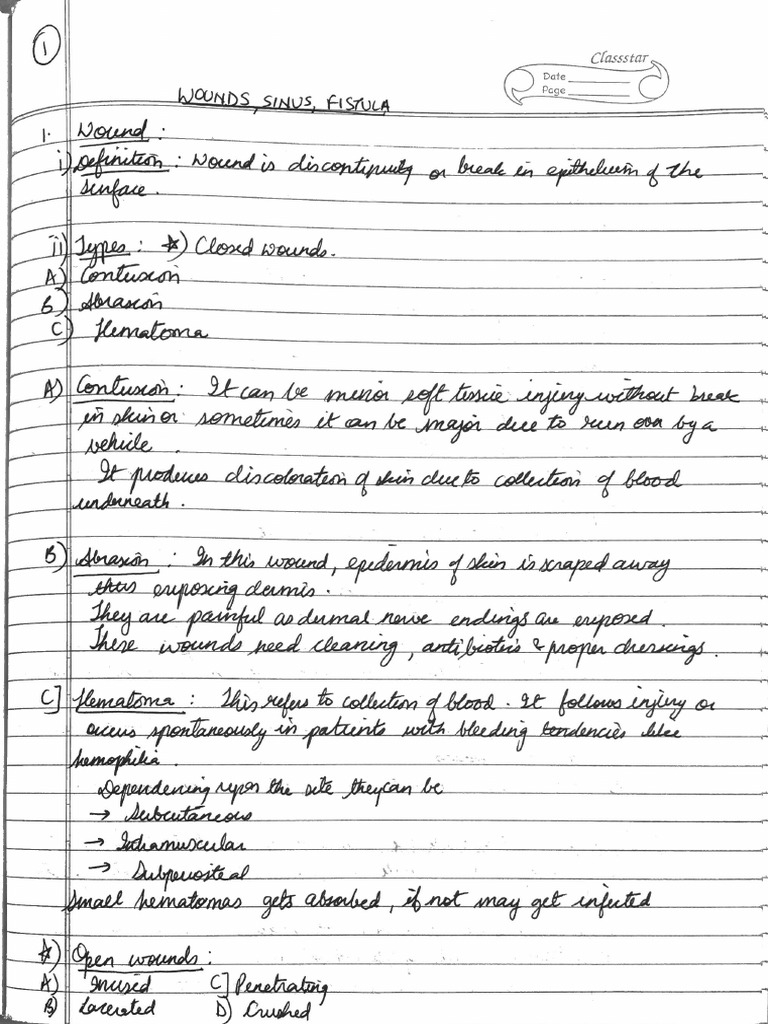 1
Classstar
Date
Page
WOUNDS, SINUS, FISTULA
1. Wound :
i) Definition : Wound is discontinuity or break in epithelium of the
surface.
ii) Types : *) Closed wounds.
A) Contusion
B) Abrasion
C) Hematoma
A) Contusion : It can be minor soft tissue injury without break
in skin or sometimes it can be major due to run over by a
vehicle.
It produces discoloration of skin due to collection of blood
underneath.
B) Abrasion : In this wound, epidermis of skin is scraped away
thus exposing dermis.
They are painful as dermal nerve endings are exposed.
These wounds need cleaning, antibiotics & proper dressings.
C] Hematoma : This refers to collection of blood. It follows injury or
occurs spontaneously in patients with bleeding tendencies like
hemophilia.
Dependening upon the site they can be
→ Subcutaneous
→ Intramuscular
→ Subperiosteal
Small hematomas gets absorbed, if not may get infected
*) Open wounds :
A) Incised C] Penetrating
B) Lacerated D) Crushed